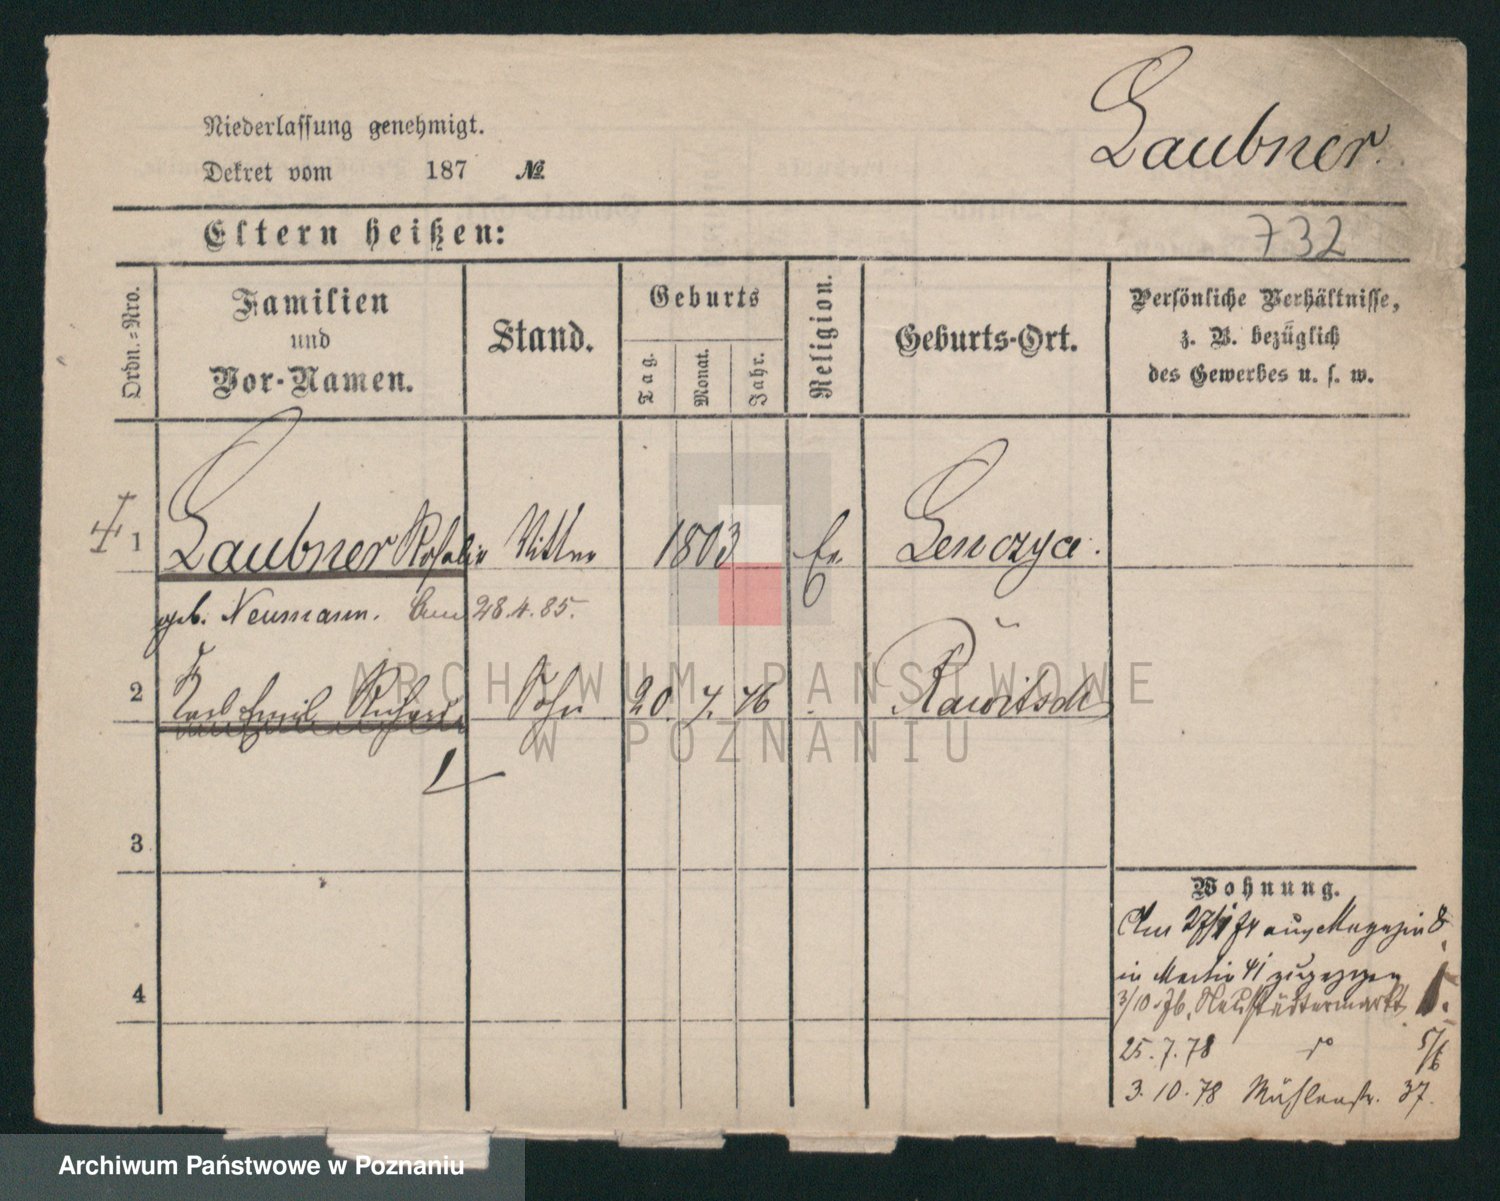 Laubner.
Niederlassung genehmigt.
Dekret vom 187 №
Eltern heißen:
732
Ordn.=Nro.
Familien
und
Vor-Namen.
Stand.
Geburts
Tag.
Monat.
Jahr.
Religion.
Geburts-Ort.
Persönliche Verhältnisse,
z. B. bezüglich
des Gewerbes u. s. w.
1 Laubner Rosalie Wittwe 1803 Ev. Lenczyce.
geb. Neumann. 28.4.85.
2 Karl Emil Richard Sohn 20. 4. 46 Rawitsch
ARCHIWUM PAŃSTWOWE
W POZNANIU
3
4
Wohnung.
Am 27/1 aus Magazin 8
in Martin 41 zugezogen
3/10. 76. Neustädtermarkt
25. 7. 78 do 5/6
3. 10. 78 Mühlenstr. 37.
Archiwum Państwowe w Poznaniu